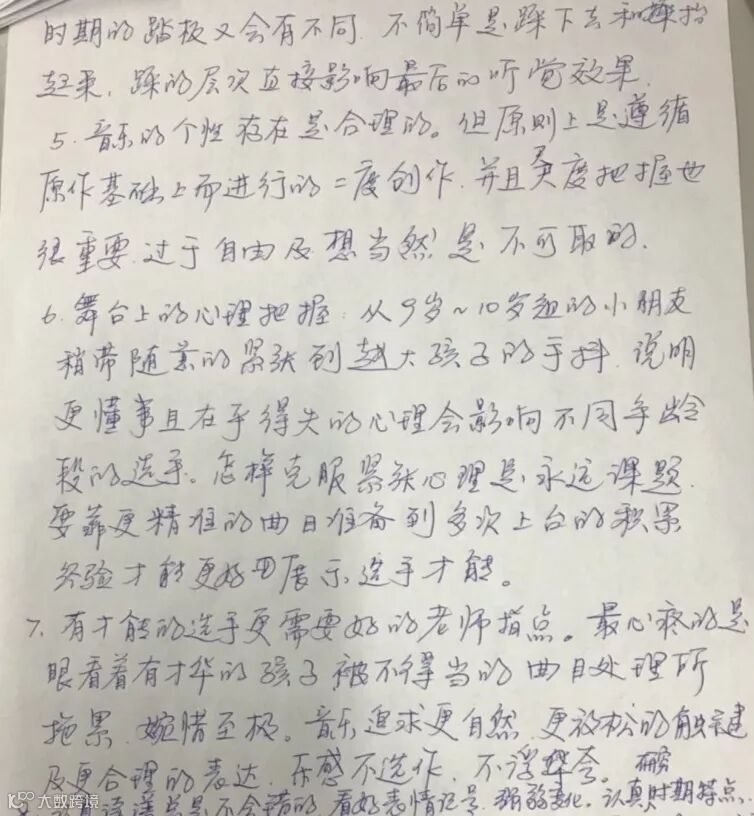 时期的踏板又会有不同. 不简单是踩下去和抬
起来, 踩的层次直接影响最后的听觉效果.
5. 音乐的个性存在是合理的。但原则上是遵循
原作基础上而进行的二度创作. 并且尺度把握也
很重要. 过于自由及想当然是不可取的.
6. 舞台上的心理把握: 从9岁~10岁组的小朋友
稍带随意的紧张到越大孩子的手抖. 说明
更懂事且在乎得失的心理会影响不同年龄
段的选手。怎样克服紧张心理是永远课题.
要靠更精准的曲目准备到多次上台的积累
经验才能更好的展示选手才能。
7. 有才能的选手更需要好的老师指点。最心疼的是
眼看着有才华的孩子被不得当的曲目处理所
拖累. 婉惜至极。音乐追求更自然. 更放松的触键
及更合理的表达. 乐感不造作. 不浮夸。
是不会错的. 看好表情记号. 强弱变化. 认真时期特点.
大数跨境